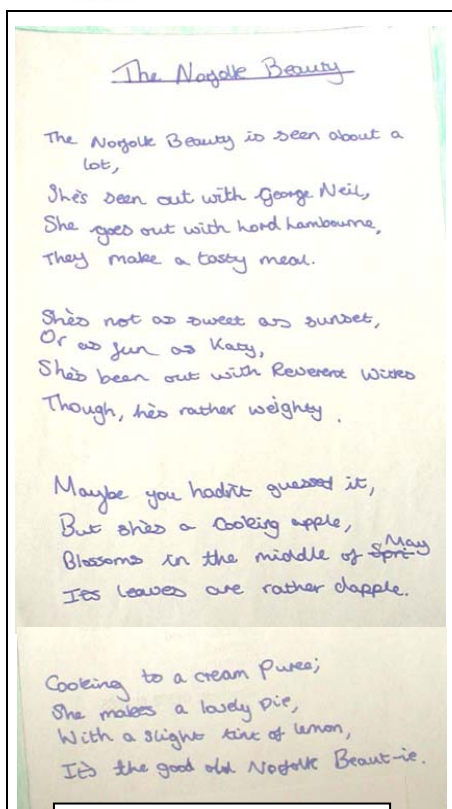 The Norfolk Beauty
The Norfolk Beauty is seen about a
lot,
She's seen out with George Neil,
She goes out with Lord Lambourne,
They make a tasty meal.
She's not as sweet as sunset,
Or as fun as Katy,
She's been out with Reverent Wilks
Though, he's rather weighty.
Maybe you hadn't guessed it,
But she's a cooking apple,
Blossoms in the middle of Spri May
Its leaves are rather dapple.
Cooking to a cream Puree;
She makes a lovely Pie,
With a slight tint of lemon,
It's the good old Norfolk Beaut-ie.